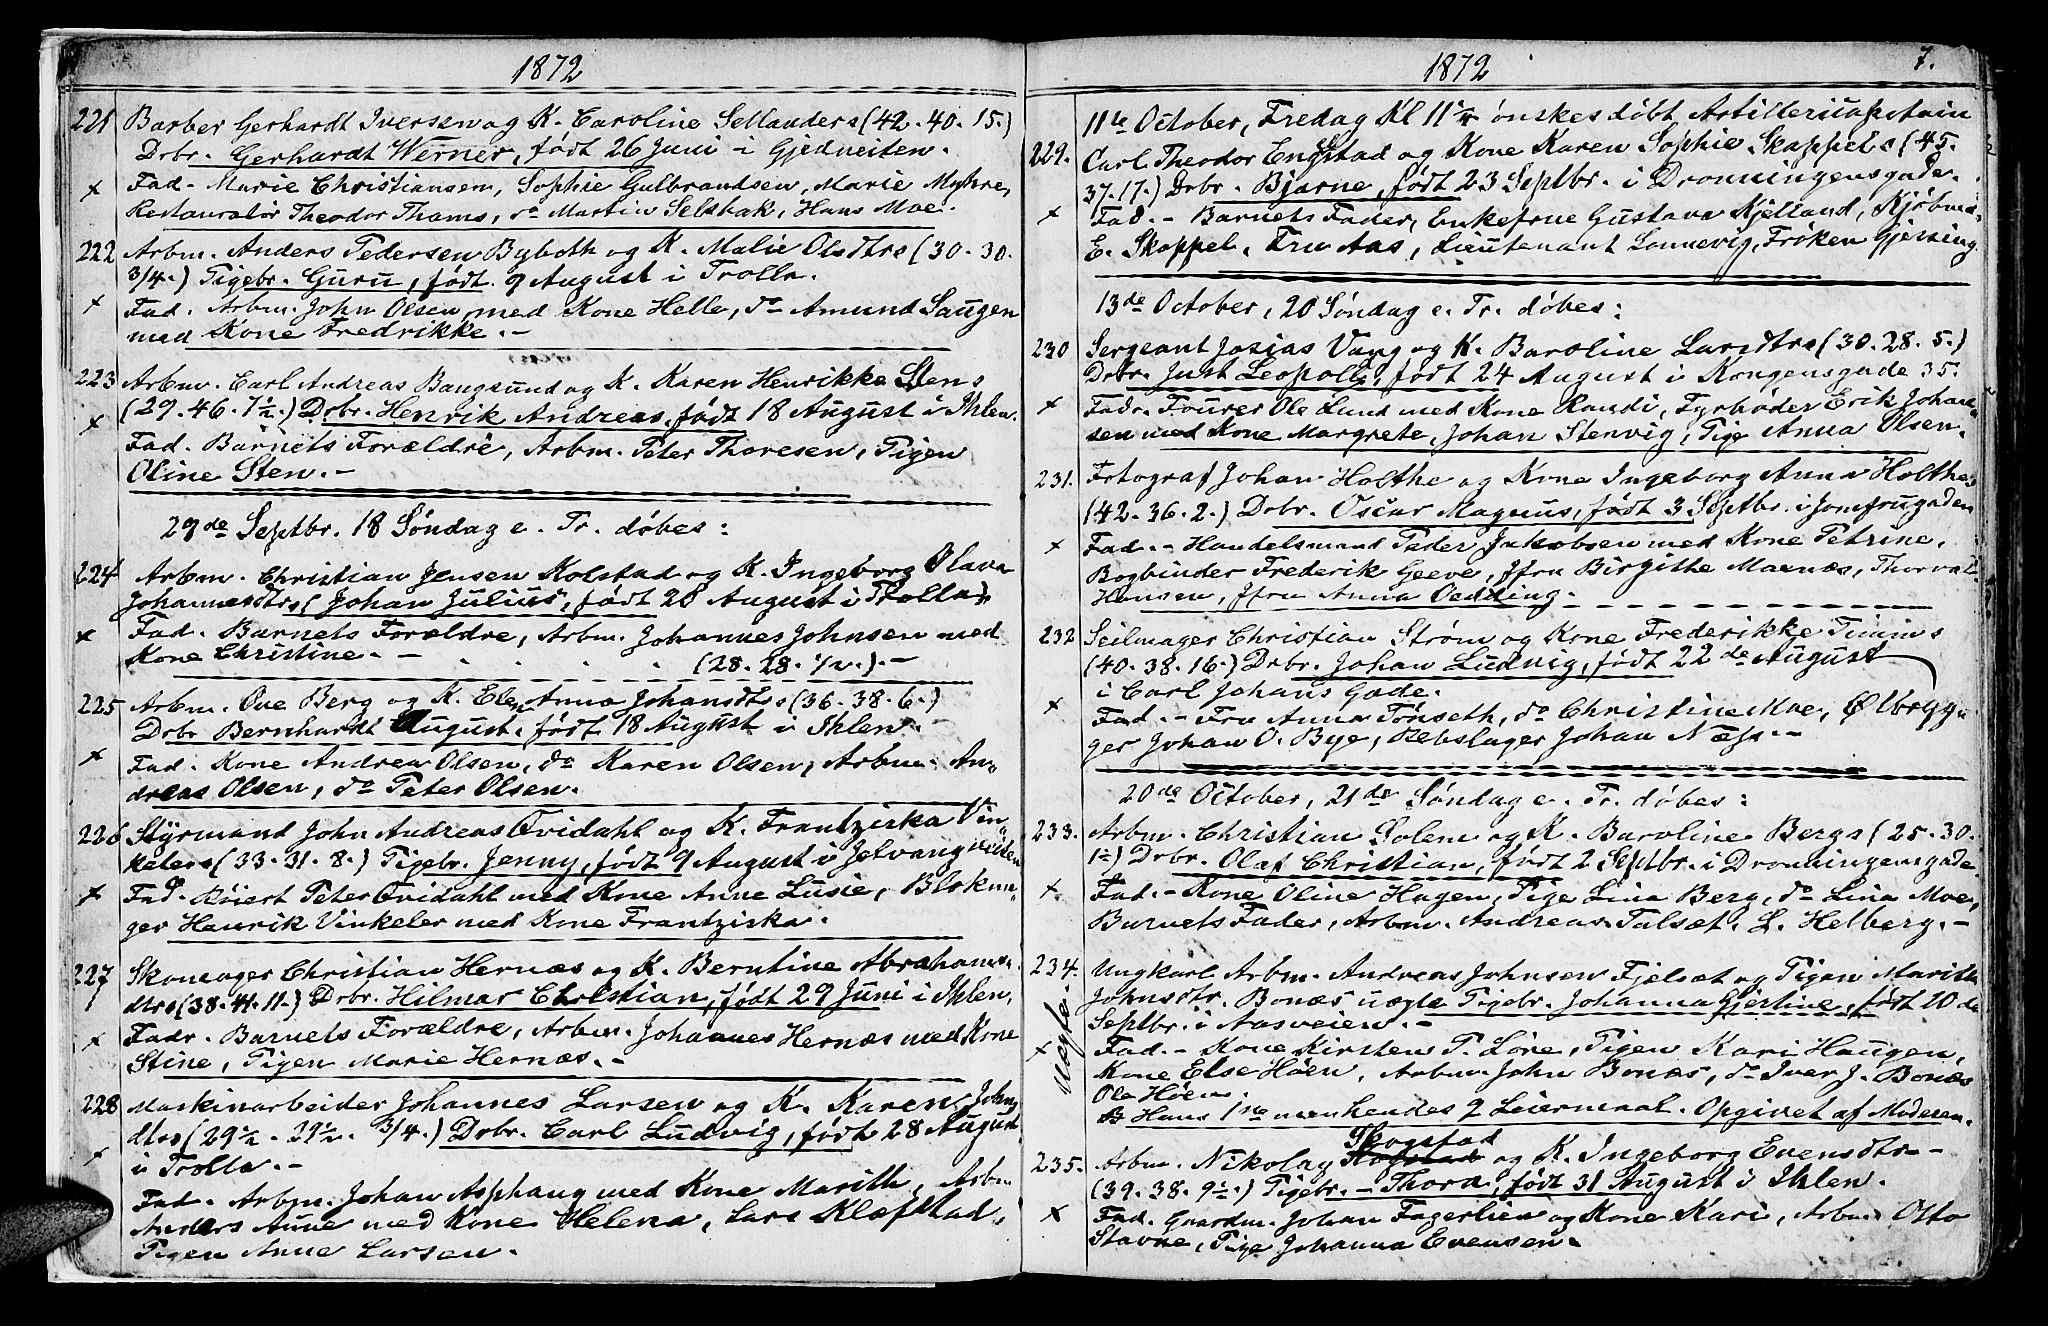 1872
221 Barber Gerhardt Iversen og K. Caroline Sellanders (42. 40. 15.)
Drbr. Gerhardt Werner, født 26 Juni i Gjedveiten.
x Fad. Marie Christiansen, Sophie Gulbrandsen, Marie Myhre,
Restauratør Theodor Thams, do Martin Selsbak, Hans Moe.
222 Arbm. Anders Pedersen Byboth og K. Malie Olsdtrs (30. 30.
3/4.) Pigebr. Guru, født 9 August i Trolla.
x Fad. Arbm. John Olsen med Kone Helle, do Amund Haugen
med Kone Fredrikke. -
223 Arbm. Carl Andreas Bangsund og K. Karen Henrikke Stens
(29. 46. 7½.) Drbr. Henrik Andreas, født 18 August i Ihlen.
x Fad. Barnets Forældre, Arbm. Peter Thoresen, Pigen
Oline Sten. -
29de Septbr. 18 Søndag e. Tr. døbes:
224 Arbm. Christian Jensen Kolstad og K. Ingeborg Olava
Johannesdtrs (Johan Julius, født 28 August i Trolla).
x Fad. Barnets Forældre, Arbm. Johannes Johnsen med
Kone Christine. - (28. 28. ½.). -
225 Arbm. Ove Berg og K. Elen Anna Johansdtrs (36. 38. 6.)
Drbr Bernhardt August, født 18 August i Ihlen.
x Fad. Kone Andrea Olsen, do Karen Olsen, Arbm. An-
dreas Olsen, do Peter Olsen.
226 Styrmand John Andreas Qvidahl og K. Frantziska Vin-
kelers (33. 31. 8.) Pigebr. Jenny, født 9 August i Jelvangveiten
x Fad. Røiert Peter Qvidahl med Kone Anne Lusie, Blokm-
ger Henrik Vinkeler med Kone Frantziska.
227 Skomager Christian Hernæs og K. Berntine Abrahams-
dtrs (38. 41. 11.) Drbr. Hilmar Christian, født 29 Juni i Ihlen,
x Fadr. Barnets Forældre, Arbm. Johannes Hernæs med Kone
Stine, Pigen Marie Hernæs. -
228 Maskinarbeider Johannes Larsen og K. Karen John
dtrs (29½. 29½. 3/4.) Drbr. Carl Ludvig, født 28 August
x i Trolla. -
Fad. Arbm. Johan Asphaug med Kone Marith, Arbm
Anders Aune med Kone Helena, Lars Klefstad,
Pigen Anne Larsen.
1872 7.
11te October, Fredag Kl 11½ ønskes døbt Artillericapitain
229. Carl Theodor Engstad og Kone Karen Sophie Skappels (45.
37. 17.) Drbr. Bjarne, født 23 Septbr. i Dronningensgade.
x Fad. - Barnets Fader, Enkefrue Gustava Kjelland, Kjøbmd.
E. Skappel, Fru Aas, Lieutenant Lonnevig, Frøken Gjersing
13de October, 20 Søndag e. Tr. døbes:
230 Sergeant Josias Vang og K. Baroline Larsdtrs (30. 28. 5.)
Drbr. Just Leopold, født 24 August i Kongensgade 35.
x Fadr. Fourer Ole Lund med Kone Randi, Fyrbøder Erik Johan-
sen med Kone Margrete, Johan Stenvig, Pige Anna Olsen.
231. Fotograf Johan Holthe og Kone Ingeborg Anna Holthes
(42. 36. 2.) Drbr. Oscar Magnus, født 3 Septbr. i Jomfrugaden
x Fad. - Handelsmand Peder Jakobsen med Kone Petrine,
Bogbinder Frederik Geeve, Jfru Birgithe Marnæs, Thorval
Hansen, Jfru Anna Oedding.
232 Seilmager Christian Strøm og Kone Frederikke Timms
(40. 38. 16.) Drbr. Johan Ludvig, født 22de August
i Carl Johans Gade.
x Fad. - Fru Anna Tønseth, do Christine Moe, Ølbryg-
ger Johan O. Bye, Rebslager Johan Næss. -
20de October, 21de Søndag e. Tr. døbes:
233. Arbm. Christian Solem og K. Baroline Bergs (25. 30.
1½) Drbr. Olaf Christian, født 2 Septbr. i Dronningensgade
x Fad. - Kone Oline Hagen, Pige Lina Berg, do Lina Moe,
Barnets Fader, Arbm. Andreas Talsæt, L. Helberg. -
234. Ungkarl Arbm. Andreas Johnsen Fjelset og Pigen Marith
Johnsdtr. Bonæs uægte Pigebr. Johanna Gjertine, født 10de
Septbr. i Aasveien. -
Uægte.
x Fad. - Kone Kirsten P. Löre, Pigen Kari Haugen,
Kone Else Høen, Arbm. John Bonæs, do Iver J. Bonæs
Ole Høen.
Hans 1ne men hendes 2 Leiermaal. Opgivet af Moderen.
Skogstad
235. Arbm. Nikolay og K. Ingeborg Evensdtr -
(39. 38. 9½.) Pigebr. - Thora, født 31 August i Ihlen.
x Fad. Gaardm. Johan Fagerlien og Kone Kari, Arbm. Otto
Stavne, Pige Johanna Evensen.